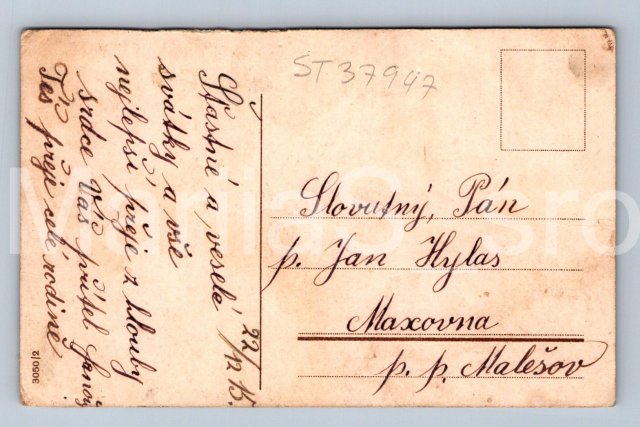 ST37947
22/12 15.
Šťastné a veselé
svátky a vše
nejlepší přeje z hlouby
srdce Váš přítel
Též přeje celé rodině
Slovutný Pán
p. Jan Hylas
Maxovna
p. p. Malešov
3050/2